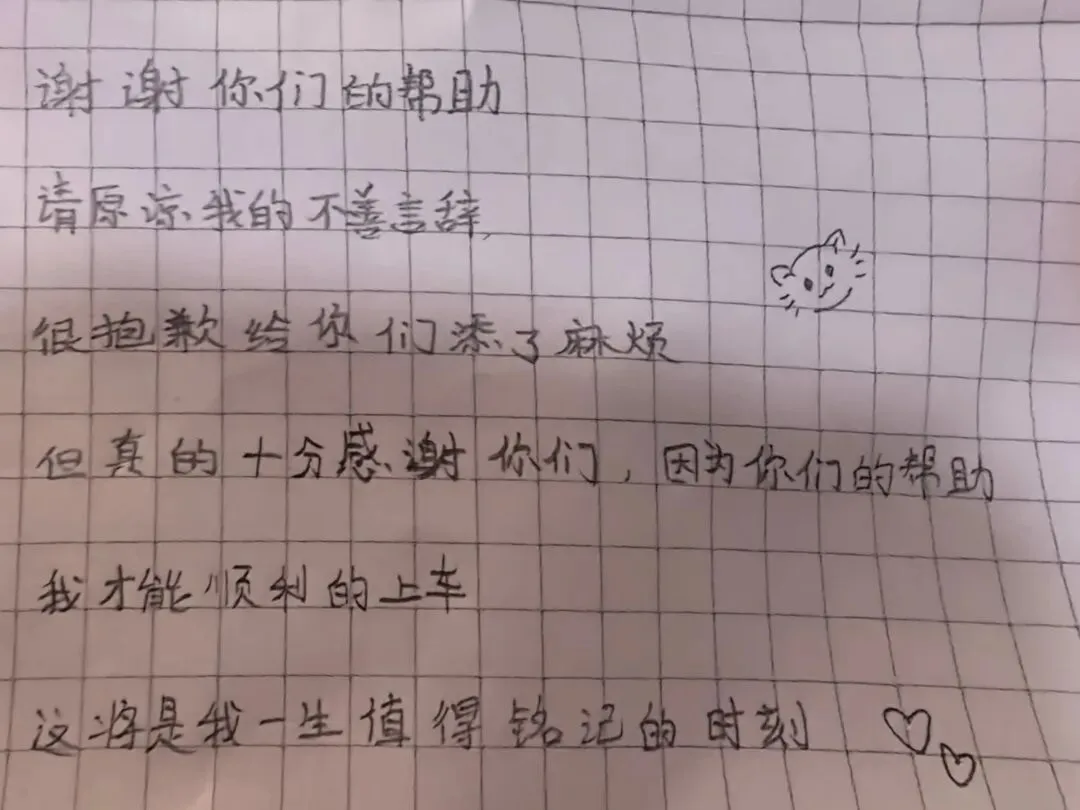 谢谢你们的帮助
请原谅我的不善言辞,
很抱歉给你们添了麻烦
但真的十分感谢你们,因为你们的帮助
我才能顺利的上车
这将是我一生值得铭记的时刻